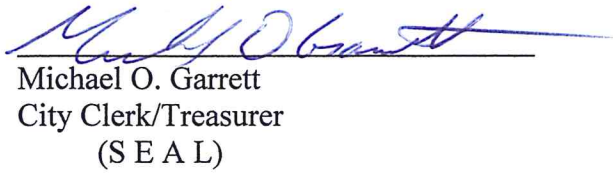 Michael O. Garrett
Michael O. Garrett
City Clerk/Treasurer
(S E A L)